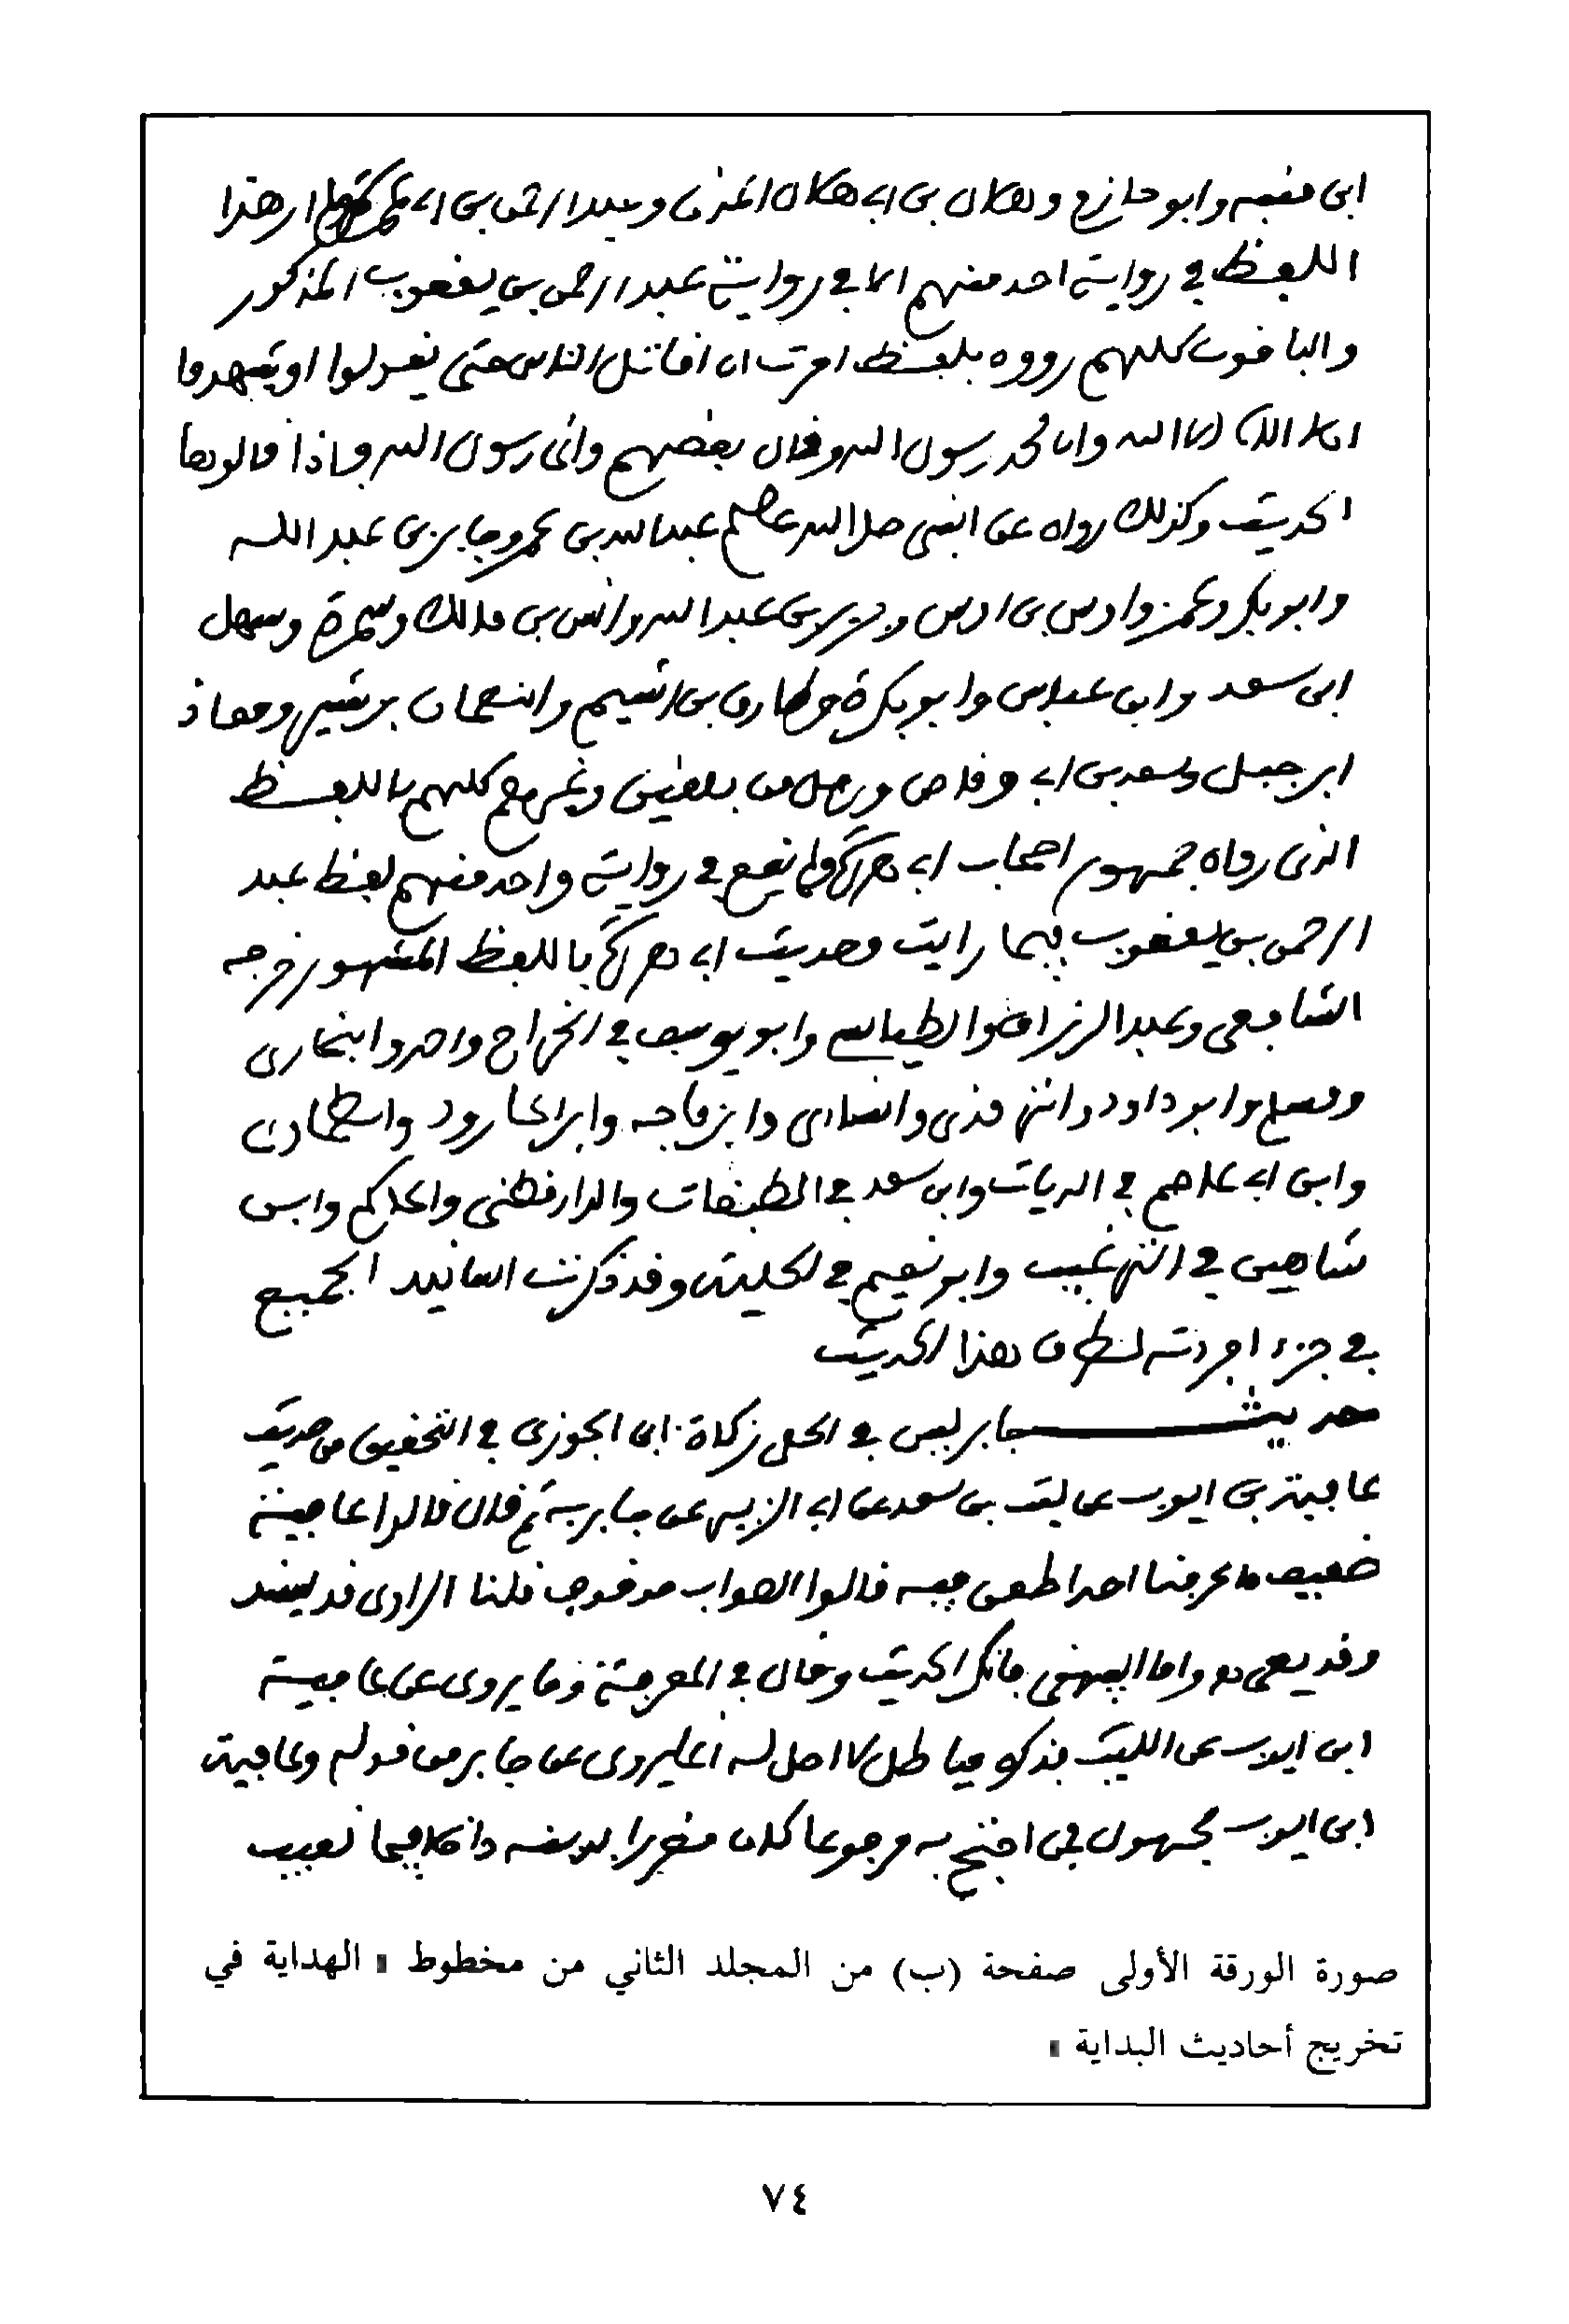 ابن منبه وابو حازم وهلال بن ابي هلال المزني وعبد الرحمن بن ابي ار هذا
اللفظ في رواية احد منهم الا في رواية عبد الرحمن بن يعقوب المذكور
والباقون كلهم رووه بلفظ امرت ان اقاتل الناس حتى يقولوا او يشهدوا
ان لا اله الا الله وان محمد رسول الله وقال بعضهم واني رسول الله فاذا قالوها
الحديث وكذلك رواه عن النبي صلى الله عبد الله بن عمر وجابر بن عبد الله
وابو بكر وعمر واوس بن اوس وجرير بن عبد الله وانس بن مالك وسمرة وسهل
ابن سعد وابن عباس وابو بكرة وطارق بن اشيم والنعمان بن بشير ومعاذ
ابن جبل وسعد بن ابي وقاص ورجل من بلقين وغيرهم كلهم باللفظ
الذي رواه جمهور اصحاب ابي هريرة ولم يقع في رواية واحد منهم لفظ عبد
الرحمن بن يعقوب فيما رايت وحديث ابي هريرة باللفظ المشهور خرجه
الشافعي وعبد الرزاق والطيالسي وابو يوسف في الخراج واحمد والبخاري
ومسلم وابو داود والترمذي والنسائي وابن ماجه وابن الجارود والطحاوي
وابن ابي عاصم في الديات وابن سعد في الطبقات والدارقطني والحاكم وابن
شاهين في الترغيب وابو نعيم في الحلية وقد ذكرت اسانيد الجميع
في جزء افردته لطرق هذا الحديث
حديث جابر ليس في الحلي زكاة ابن الجوزي في التحقيق من حديث
عافية بن ايوب عن ليث بن سعد عن ابي الزبير عن جابر به ثم قال قالوا عافية
ضعيف ما عرفنا احدا طعن فيه قالوا الصواب موقوف قلنا الراوي قد يسند
وقد يفتي به واما البيهقي فانكر الحديث وقال في المعرفة وما يروى عن عافية
ابن ايوب عن الليث فذكره فباطل لا اصل له انما يروى عن جابر من قوله وعافية
ابن ايوب مجهول فمن احتج به مرفوعا كان مغررا بدينه داخلا فيما نعيب
صورة الورقة الأولى صفحة (ب) من المجلد الثاني من مخطوط «الهداية في
تخريج أحاديث البداية»
٧٤